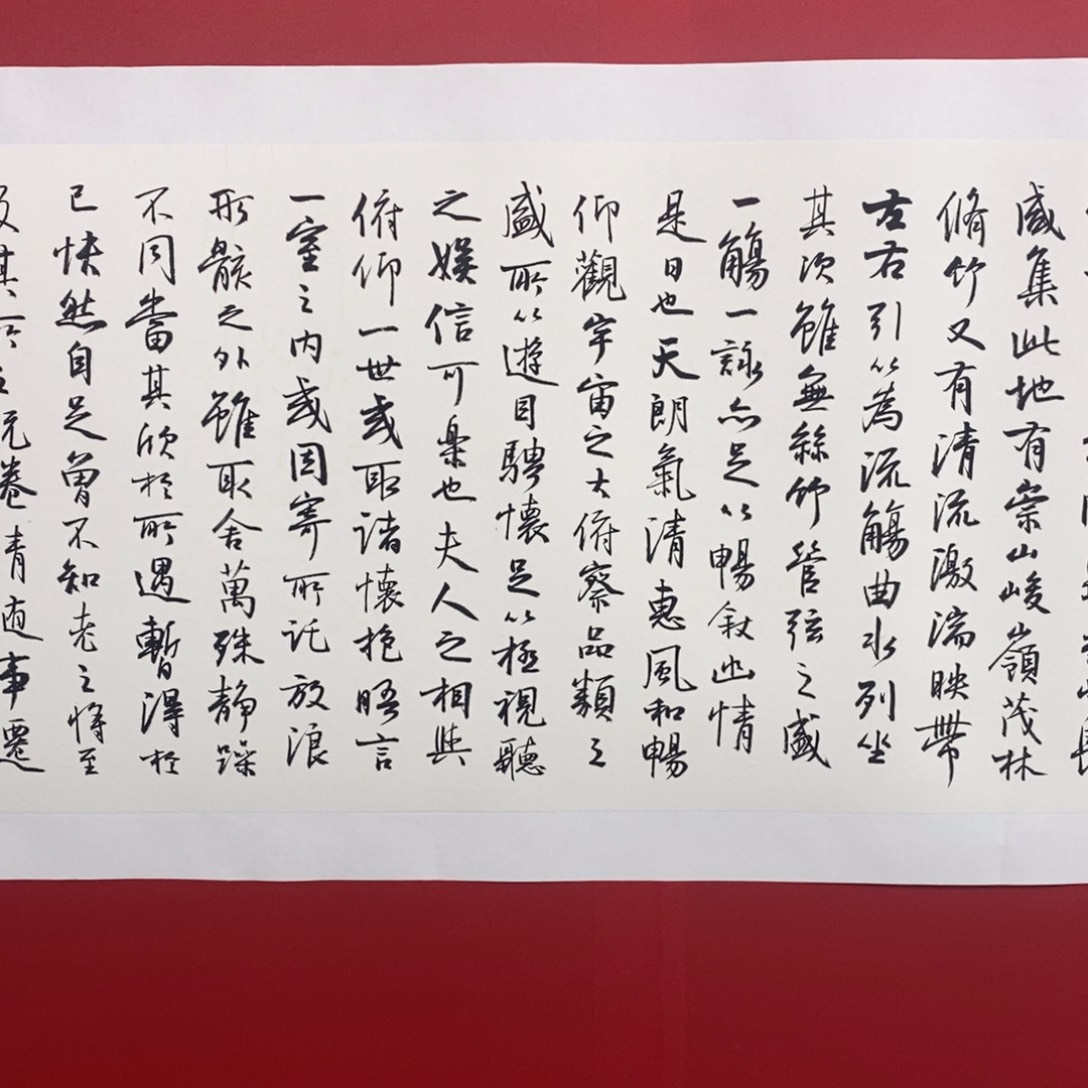 咸集此地有崇山峻嶺茂林
脩竹又有清流激湍映帶
左右引以為流觴曲水列坐
其次雖無絲竹管弦之盛
一觴一詠亦足以暢敘幽情
是日也天朗氣清惠風和暢
仰觀宇宙之大俯察品類之
盛所以遊目騁懷足以極視聽
之娛信可樂也夫人之相與
俯仰一世或取諸懷抱晤言
一室之內或因寄所託放浪
形骸之外雖取舍萬殊靜躁
不同當其欣於所遇暫得於
己快然自足曾不知老之將至
及其所之既倦情隨事遷